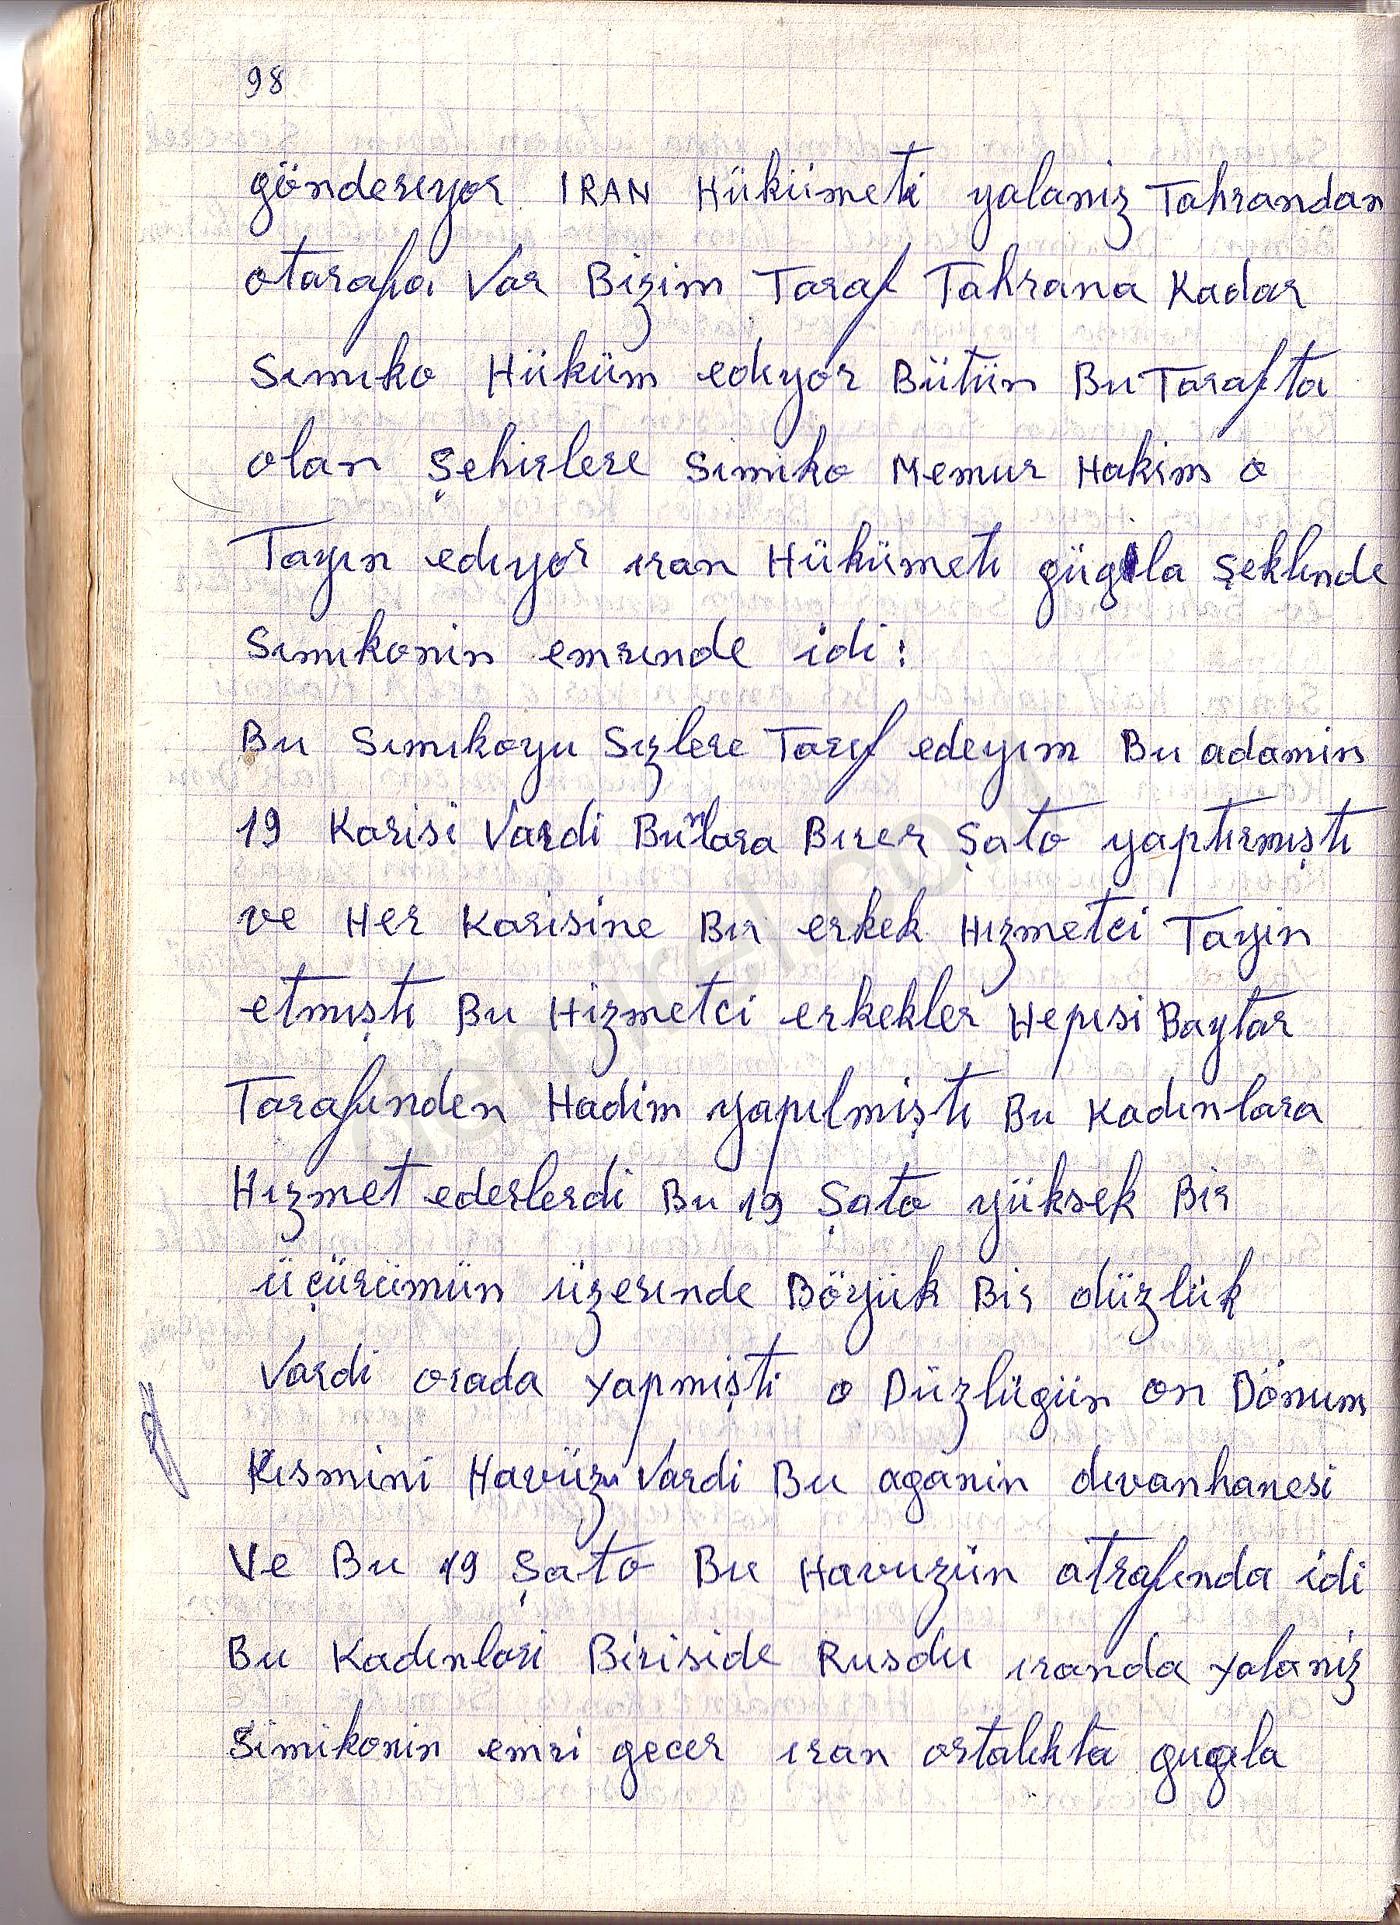 98
gönderıyor IRAN Hükümeti yalaniz Tahrandan
otarafa Var Bizim Taraf Tahrana Kadar
Sımıko Hüküm edıyor Bütün Bu Tarafta
olan Şehirlere Sımiko Memur Hakim o
Tayın edıyor ıran Hükümetı gügıla Şeklınde
Sımıkonin emrınde idi:
Bu Sımıkoyu Sızlere Tarıf edeyım Bu adamin
19 Karisi Vardi Bunlara Bırer Şato yaptırmıştı
ve Her Karisine Bır erkek Hızmetci Tayin
etmıştı Bu Hizmetci erkekler Hepısi Baytar
Tarafınden Hadim yapılmiştı Bu Kadınlara
Hızmet ederlerdi Bu 19 Şato yüksek Bir
üçürümün üzerınde Böyük Bir düzlük
Vardi orada yapmişti o Düzlügün on Dönum
Kısmini Havüzu Vardi Bu aganin dıvanhanesi
Ve Bu 19 Şato Bu Havuzün atrafında idi
Bu Kadınlari Biriside Rusdu ıranda yalaniz
Simikonin emri gecer ıran ortalıkta gugıla